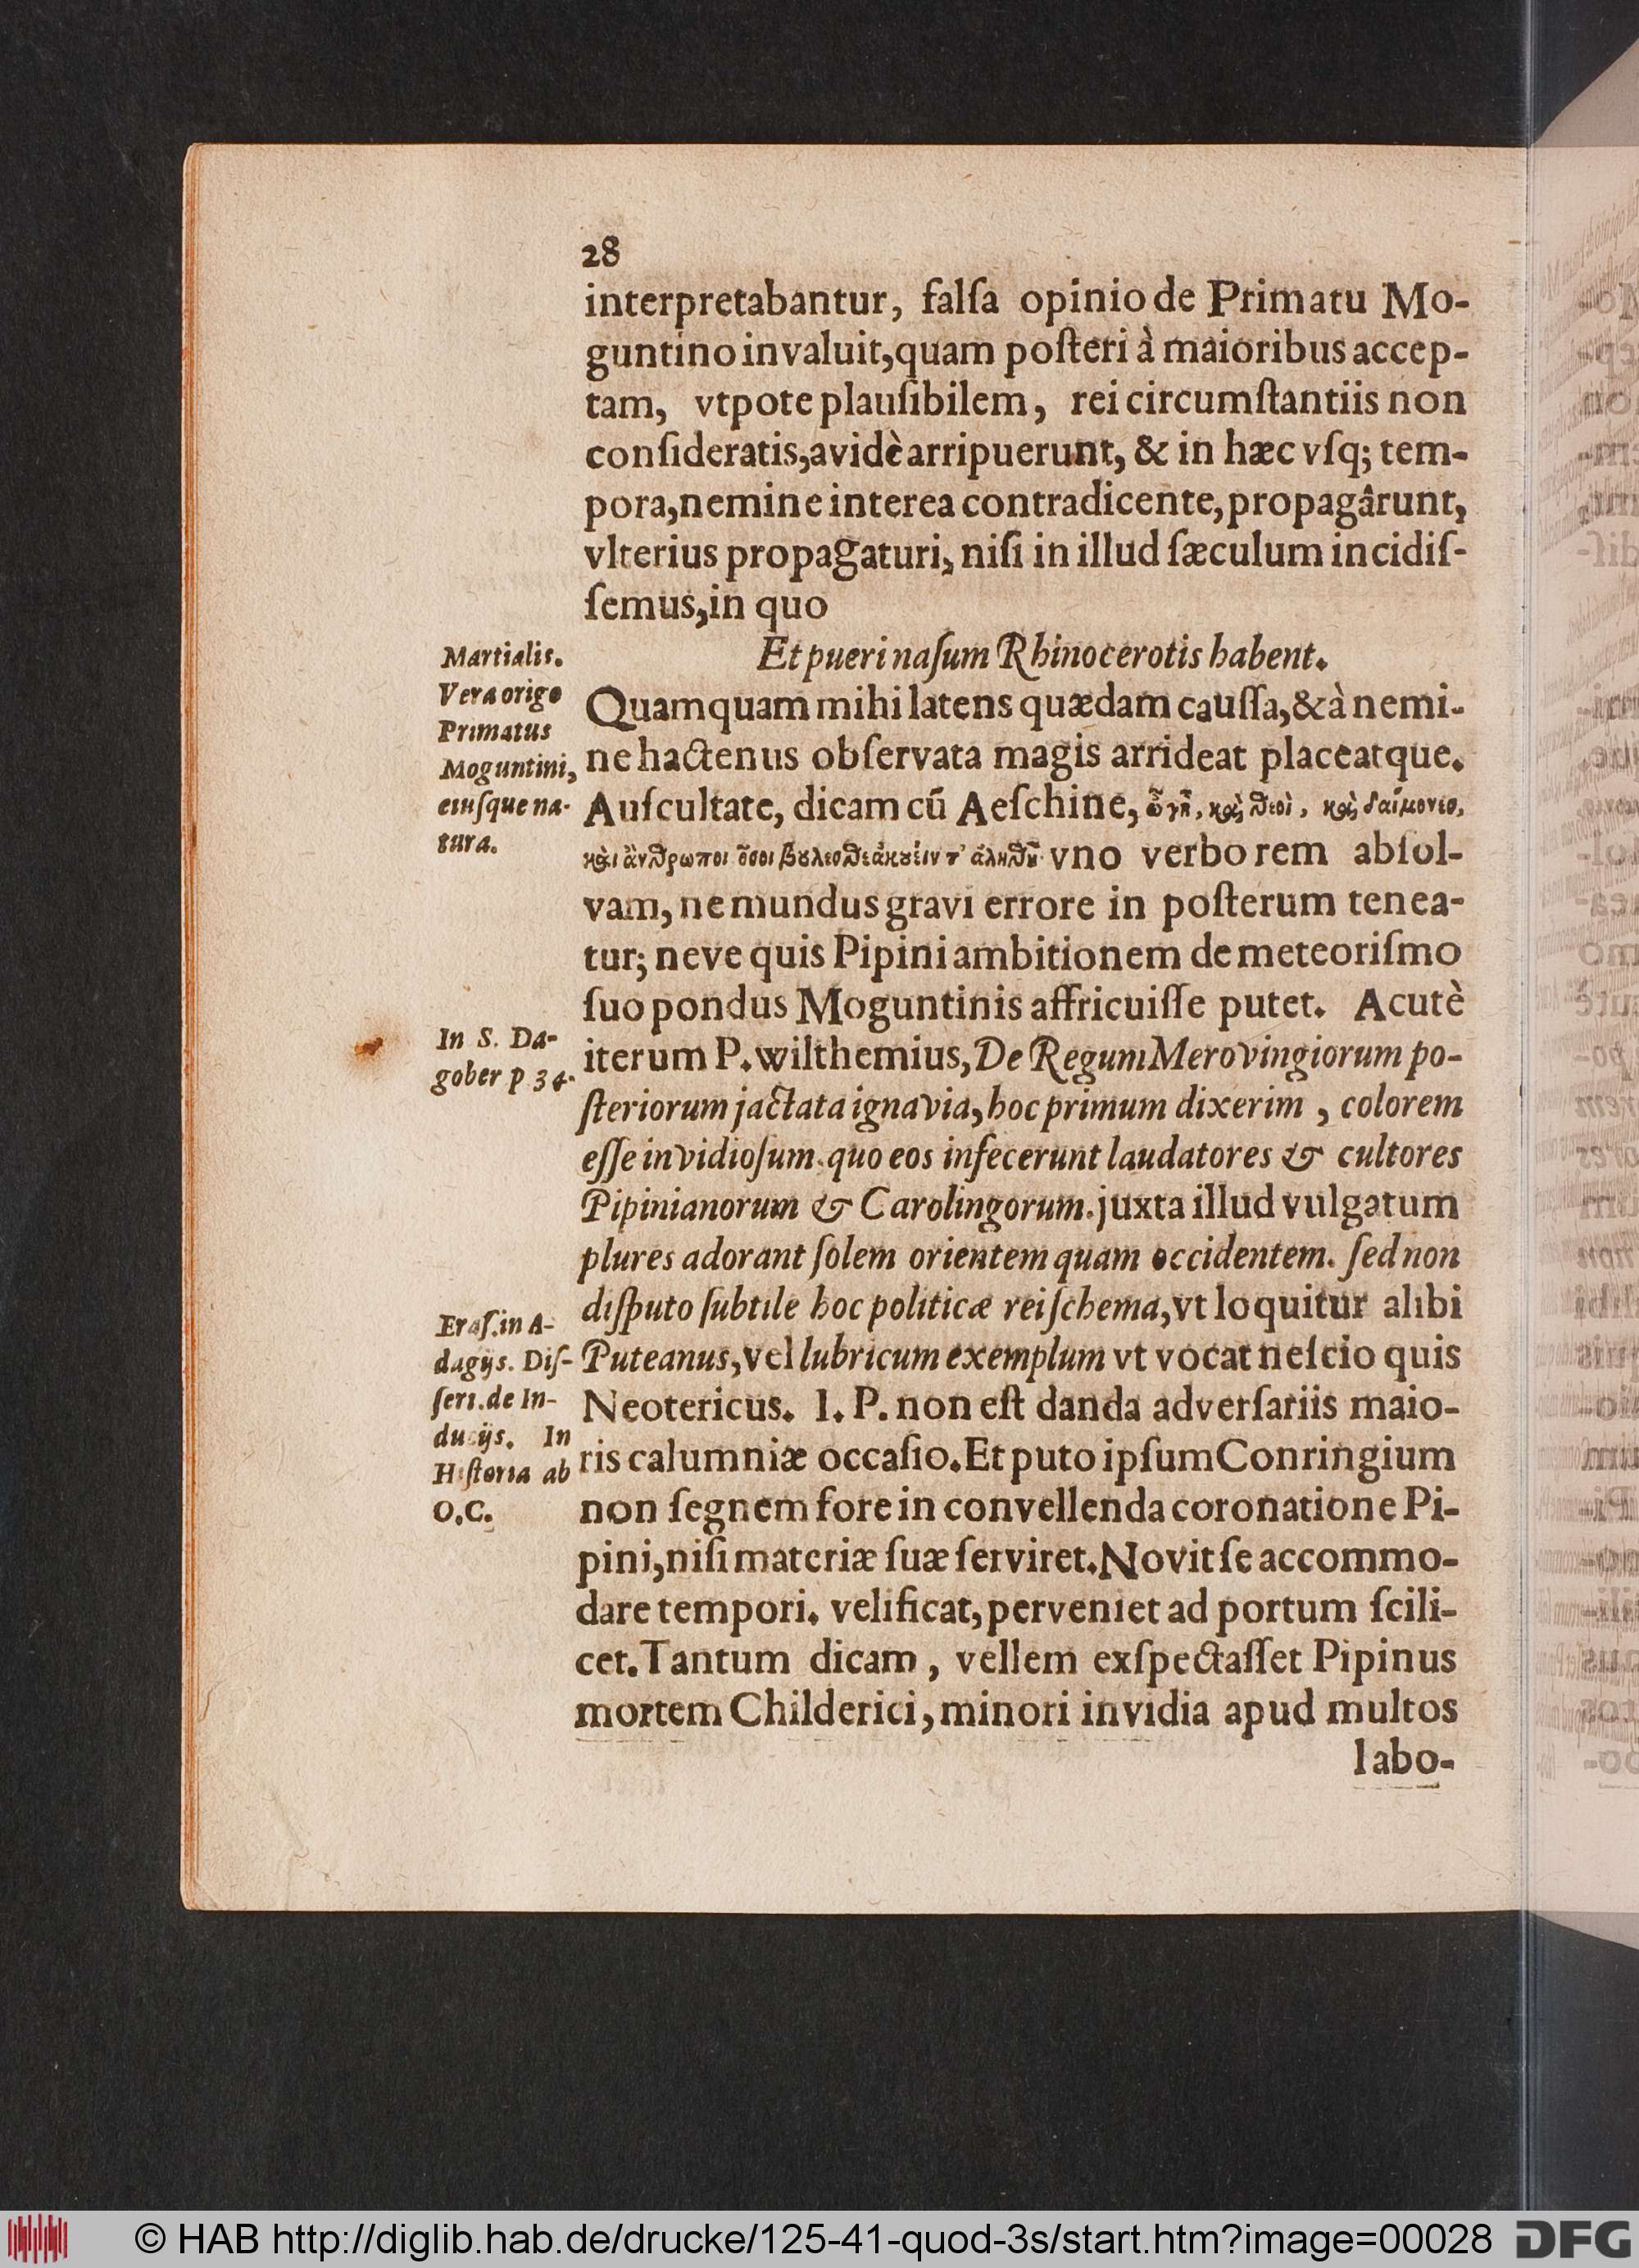 28
interpretabantur, falſa opinio de Primatu Mo-
guntino invaluit, quam poſteri à maioribus accep-
tam, vtpote plauſibilem, rei circumſtantiis non
conſideratis, avidè arripuerunt, & in hæc vſq; tem-
pora, nemine interea contradicente, propagârunt,
vlterius propagaturi, niſi in illud ſæculum incidiſ-
ſemus, in quo
Martialis.
Et pueri naſum Rhinocerotis habent.
Vera origo
Primatus
Moguntini,
eiuſque na-
tura.
Quamquam mihi latens quædam cauſſa, & à nemi-
ne hactenus obſervata magis arrideat placeatque.
Auſcultate, dicam cū Aeſchine, ὦ γῆ, καὶ θεοὶ, καὶ δαίμονες,
καὶ ἄνθρωποι ὅσοι βούλεσθε ἀκούειν τ' ἀληθῆ vno verbo rem abſol-
vam, ne mundus gravi errore in poſterum tenea-
tur; neve quis Pipini ambitionem de meteoriſmo
ſuo pondus Moguntinis affricuiſſe putet. Acutè
In S. Da-
gober p 34.
iterum P. wilthemius, De Regum Merovingiorum po-
ſteriorum jactata ignavia, hoc primum dixerim , colorem
eſſe invidioſum. quo eos infecerunt laudatores & cultores
Pipinianorum & Carolingorum. juxta illud vulgatum
plures adorant ſolem orientem quam occidentem. ſed non
diſputo ſubtile hoc politicæ rei ſchema, vt loquitur alibi
Eraſ. in A-
dagijs. Diſ-
ſert. de In-
ducijs. In
Hiſtoria ab
O.C.
Puteanus, vel lubricum exemplum vt vocat neſcio quis
Neotericus. I. P. non eſt danda adverſariis maio-
ris calumniæ occaſio. Et puto ipſum Conringium
non ſegnem fore in convellenda coronatione Pi-
pini, niſi materiæ ſuæ ſerviret. Novit ſe accommo-
dare tempori. velificat, perveniet ad portum ſcili-
cet. Tantum dicam , vellem exſpectaſſet Pipinus
mortem Childerici, minori invidia apud multos
labo-
© HAB http://diglib.hab.de/drucke/125-41-quod-3s/start.htm?image=00028
DFG